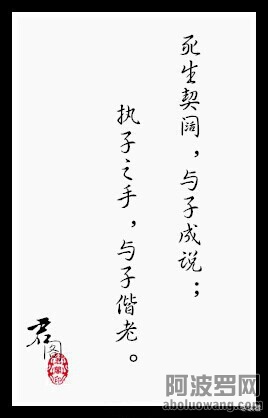 死生契阔，与子成说；
执子之手，与子偕老。
君
图
阿波罗网
aboluowang.com